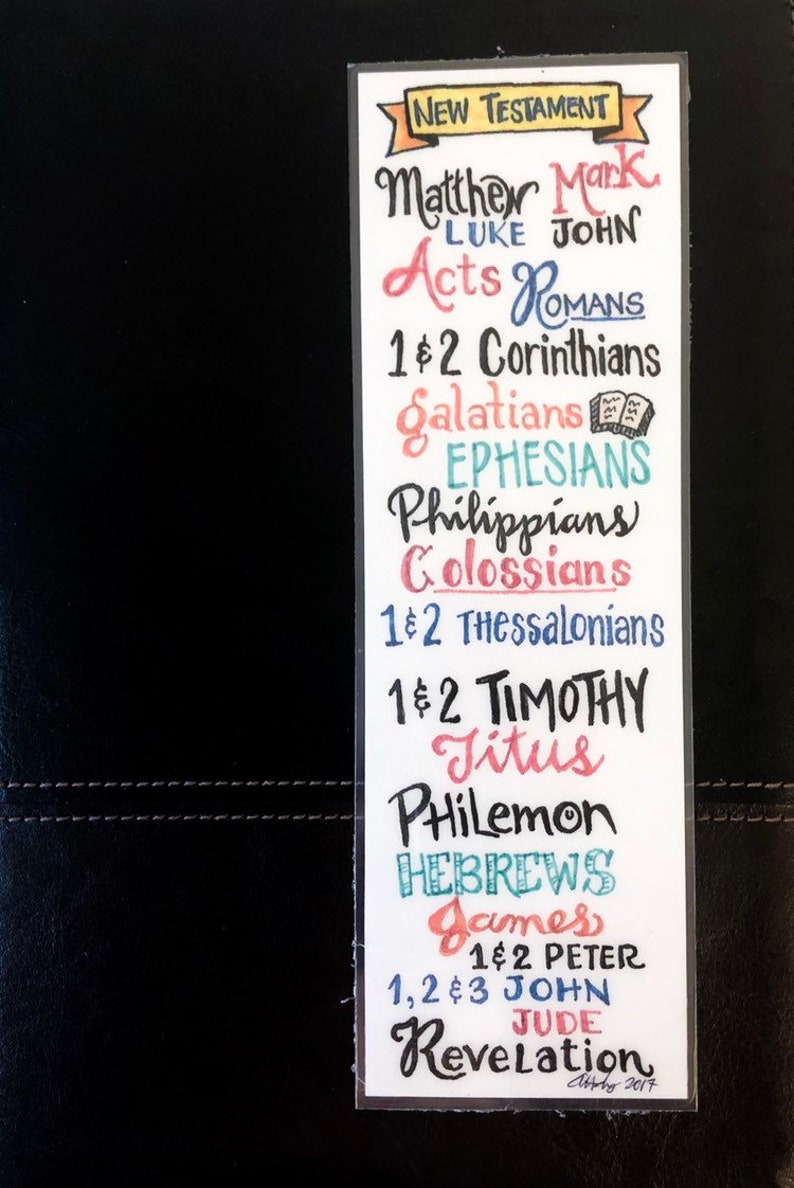 NEW TESTAMENT
Matthew Mark
LUKE JOHN
Acts ROMANS
1 & 2 Corinthians
galatians
EPHESIANS
Philippians
Colossians
1 & 2 THessalonians
1 & 2 TIMOTHY
Titus
PHiLemon
HEBREWS
James
1 & 2 PETER
1, 2 & 3 JOHN
JUDE
Revelation
2017